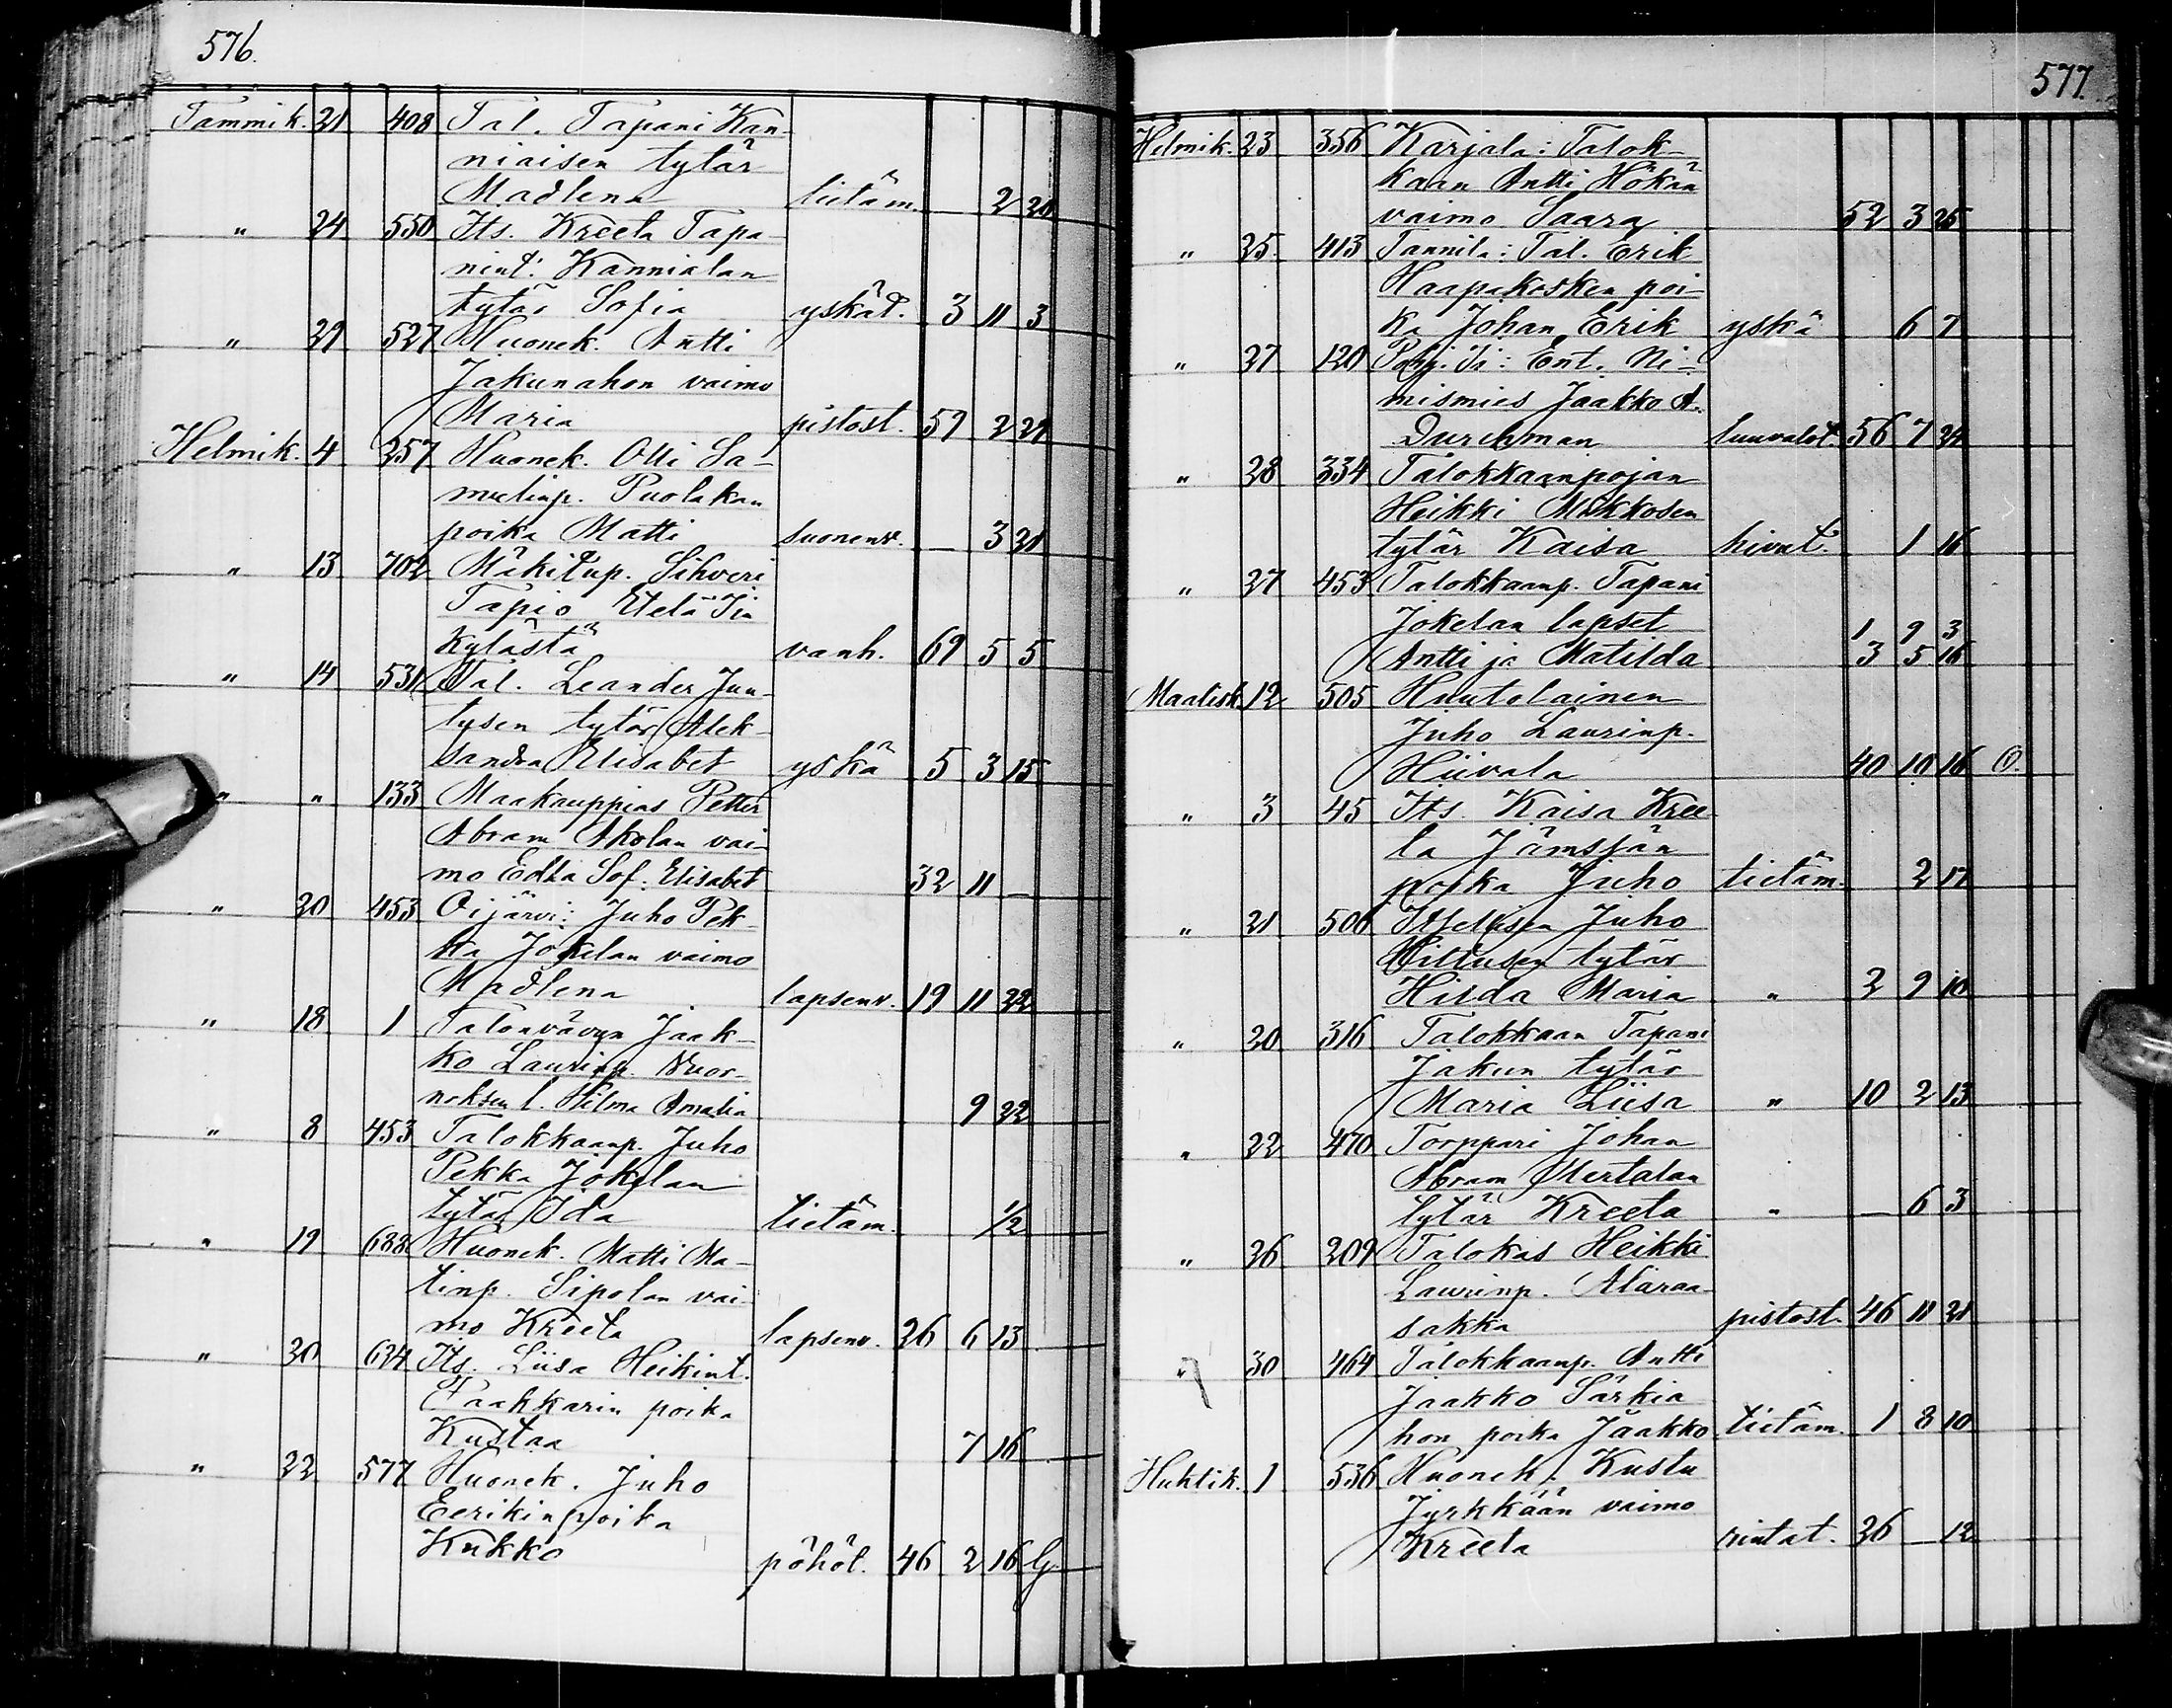 576.
Tammik. 21 408 Tal. Tapani Kan-
niaisen tytär
Madlena tietäm. — 2 20
" 24 550 Its. Kreeta Tapa-
nint. Kannialan
tytär Sofia yskät. 3 11 3
" 29 527 Huonek. Antti
Jakunahon vaimo
Maria pistost. 59 2 29
Helmik. 4 257 Huonek. Olli Sa-
muelinp. Puolakan
poika Matti suonenv. — 3 21
" 13 702 Mäkitup. Sihveri
Tapio Etelä Iin
kylästä vanh. 69 5 5
" 14 531 Tal. Leander Juu-
tysen tytär Alek-
sandra Elisabet yskä 5 3 15
" " 133 Maakauppias Petter
Abram Akolan vai-
mo Edla Sof. Elisabet 32 11 —
" 20 453 Oijärvi: Juho Pek-
ka Jokelan vaimo
Madlena lapsenv. 19 11 22
" 18 1 Talonvävyn Jaak-
ko Laurinp. Vuor-
noksen l. Hilma Amalia 9 22
" 8 453 Talokkaanp. Juho
Pekka Jokelan
tytär Ida tietäm. 1/2
" 19 688 Huonek. Matti Ma-
tinp. Sipolan vai-
mo Kreeta lapsenv. 26 6 13
" 20 624 Its. Liisa Heikint.
Paakkarin poika
Kustaa 7 16
" 22 577 Huonek. Juho
Eerikinpoika
Kukko pöhöt. 46 2 16
577.
Helmik. 23 356 Karjala: Talok-
kaan Antti Hökän
vaimo Saara 52 3 25
" 25 413 Tannila: Tal. Erik
Haapakosken poi-
ka Johan Erik yskä 6 7
" 27 120 Pohj. Ii: Ent. Ni-
mismies Jaakko A.
Durchman luuvalot. 56 7 24
" 28 334 Talokkaanpojan
Heikki Mokkosen
tytär Kaisa hivut. 1 16
" 27 453 Talokkaanp. Tapani
Jokelan lapset 1 9 3
Antti ja Matilda 3 5 16
Maalisk. 12 505 Huutolainen
Juho Laurinp.
Hiivala 40 10 16 O.
" 3 45 Its. Kaisa Kree-
ta Jämsjän
poika Juho tietäm. 2 17
" 21 506 Itsellisen Juho
Hiltusen tytär
Hilda Maria " 2 9 10
" 20 316 Talokkaan Tapani
Jakun tytär
Maria Liisa " 10 2 13
" 22 470 Torppari Johan
Abram Mertalan
tytär Kreeta " — 6 3
" 26 209 Talokas Heikki
Laurinp. Alaraa-
sakka pistost. 46 11 21
" 30 464 Talokkaanp. Antti
Jaakko Särkia
hon poika Jaakko tietäm. 1 8 10
Huhtik. 1 536 Huonek. Kustu
Jyrkkään vaimo
Kreeta rintat. 36 — 12